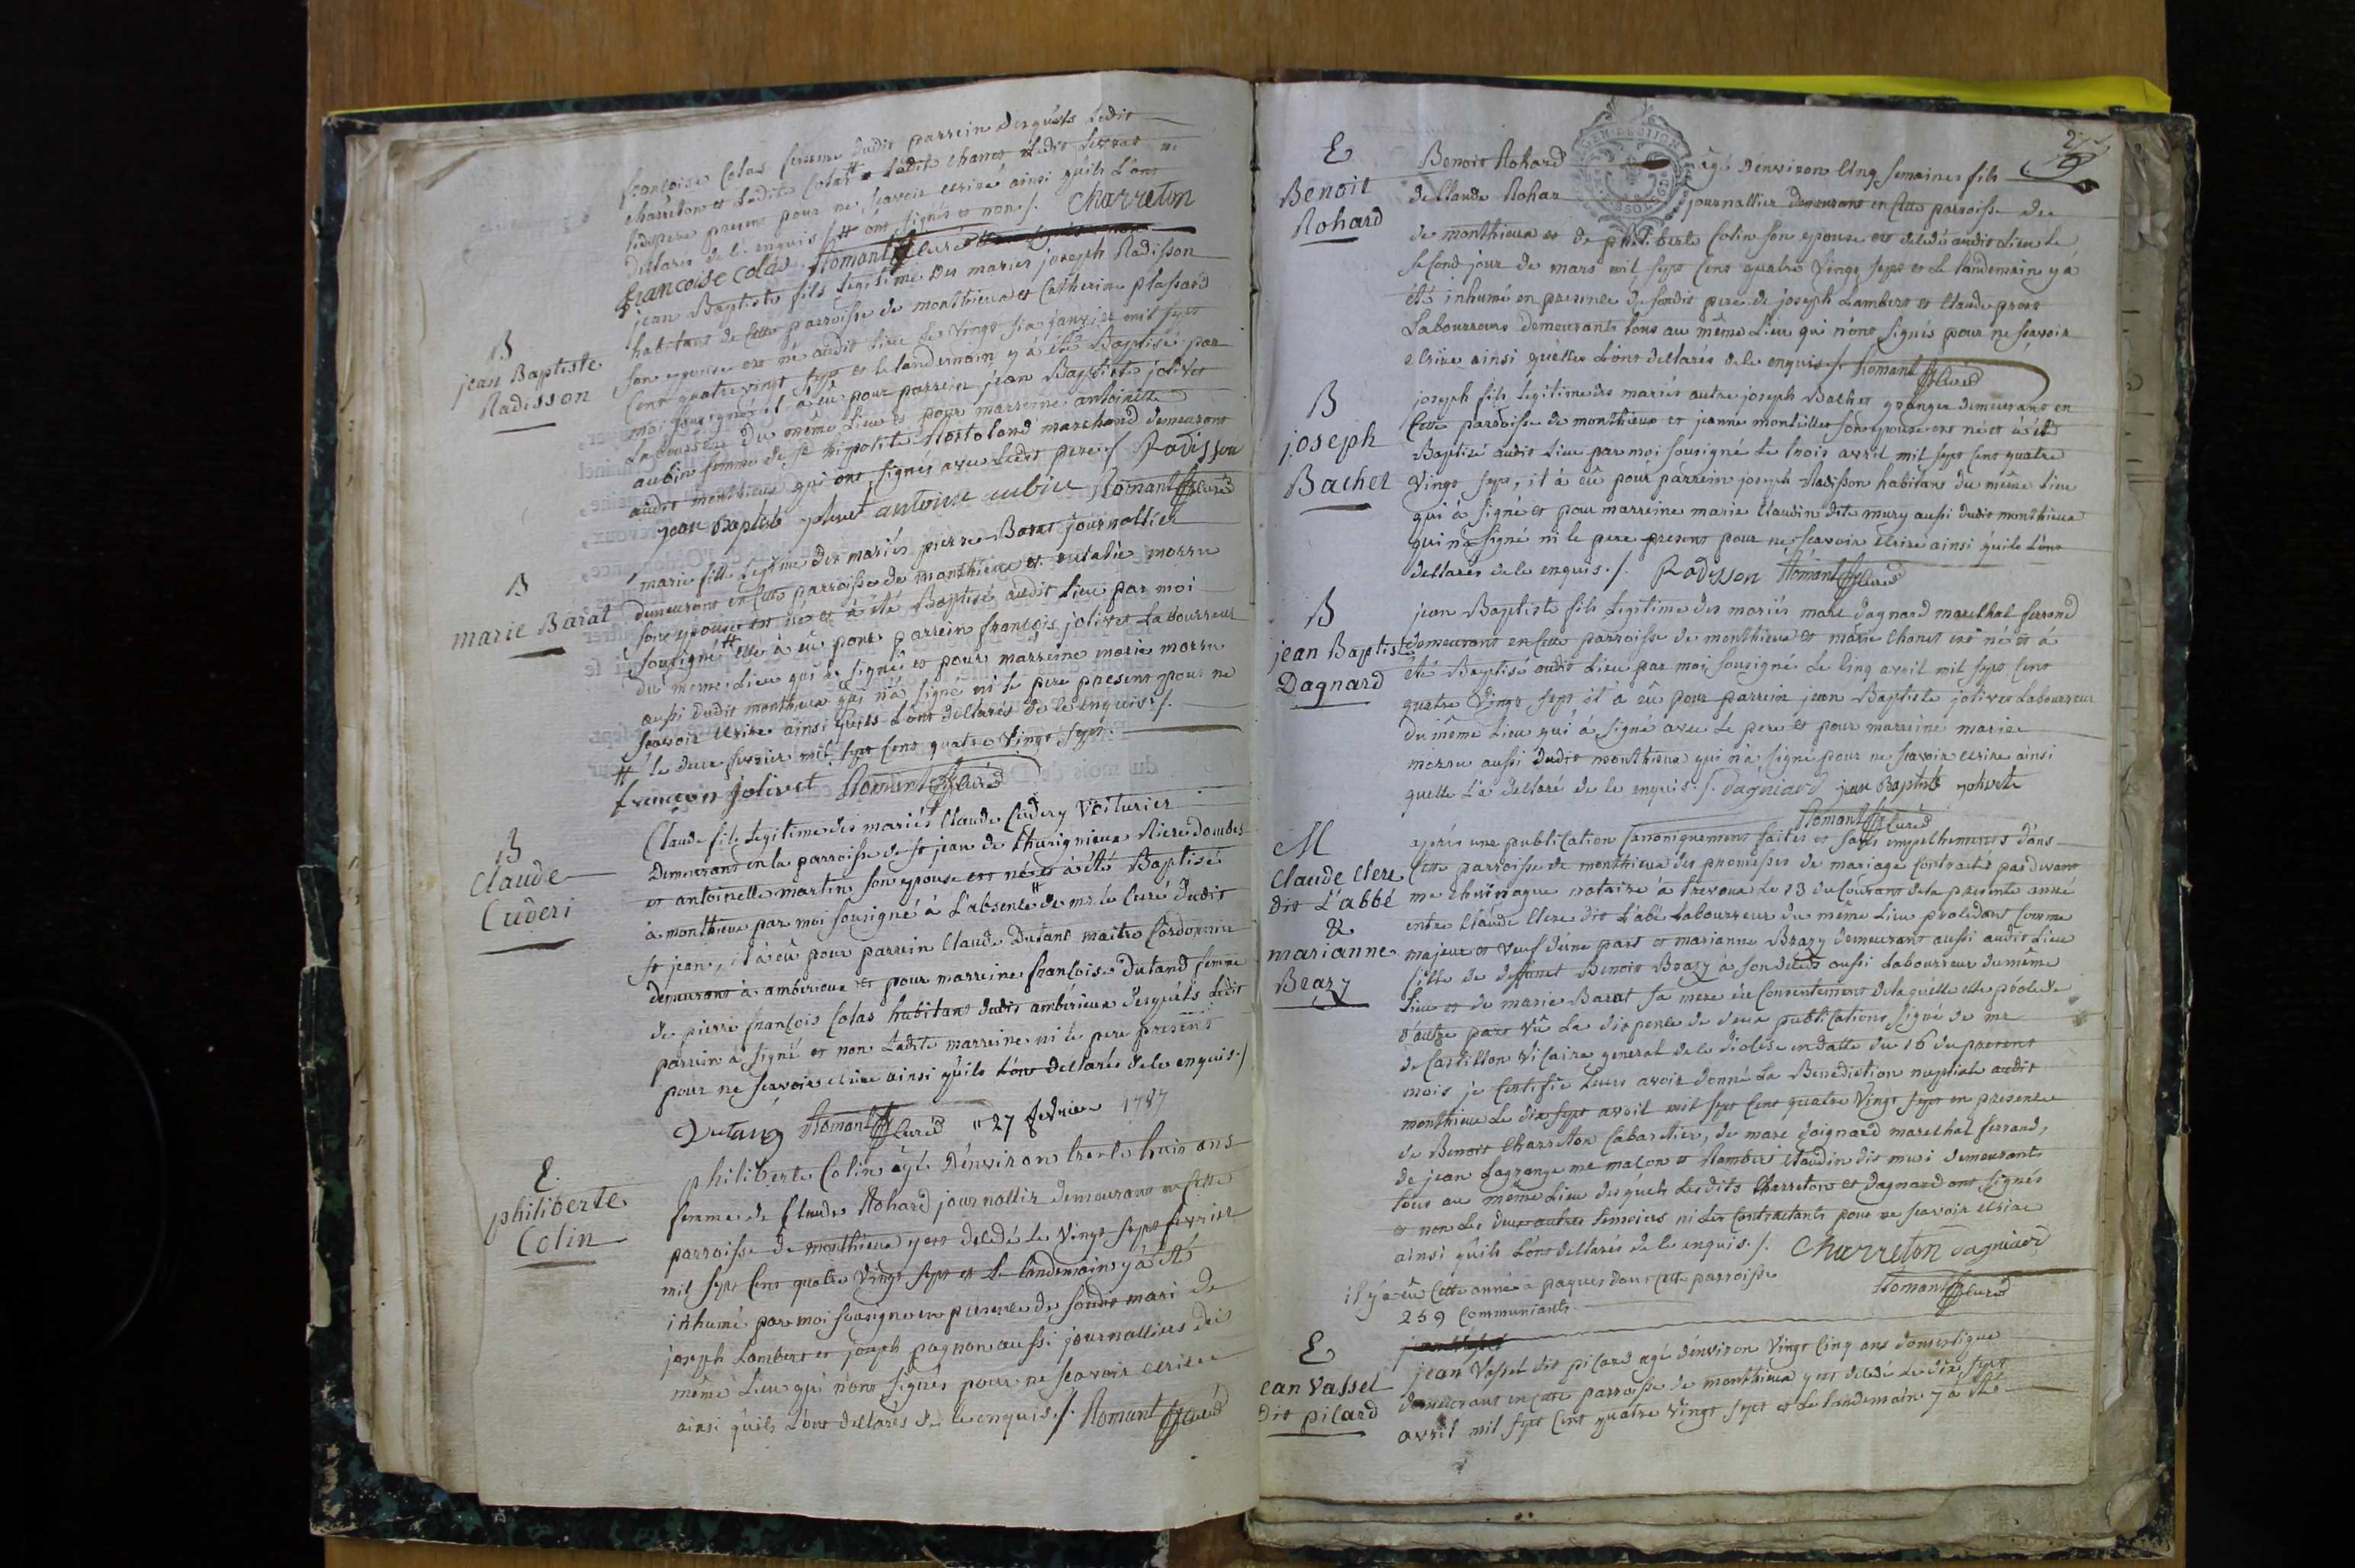 françoise Colas femme dudit parrein desquels ledit
charreton et ladite Colas # ladite chanet ledit ne
ledit pere present pour ne scavoir ecrire ainsi qu'ils l'ont
declarés de le enquis /. # ont signés et non /. Charreton
francoise colas Romant curé
B
jean Baptiste
Radisson
jean Baptiste fils legitime des mariés joseph Radisson
habitant de cette parroisse de monthieux et Catherine plassard
son epouse est né audit lieu le vingt six janvier mil sept
cent quatre vingt sept et le landemain y à été Baptisé par
moi sousigné il à eû pour parrein jean Baptiste jolivet
Laboureur du même Lieu et pour marreine antoinette
aubin femme de sr hipolite marchand demeurant
audit monthieux qui ont signés avec ledit pere / Radisson
jean baptiste jolivet antoinette aubin Romant curé
B
marie Barat
marie fille legitime des mariés pierre Barat journallier
demeurant en cette parroisse de monthieux et morru
son epouse est née et à été Baptisé audit Lieu par moi
sousigné # elle à eû pour parrein françois jolivet Labourreur
du meme Lieu qui à signé et pour marreine marie morru
aussi dudit monthieux qui n'à signé ni le pere present pour ne
scavoir ecrire ainsi qu'ils l'ont declarés de le enquis. /.
# le deux fevrier mil sept cent quatre vingt sept.
françois jolivet Romant curé
B
Claude
Cuderi
Claude fils Legitime des mariés Claude Cudery voiturier
Demeurant en la parroisse de st jean de thurignieux Riere dombes
et antoinette martin son epouse est né et à été Baptisé
à monthieux par moi sousigné à l'absence # de mr le Curé dudit
st jean, il à eû pour parrein Claude Dutant maitre Cordonnier
demeurant à ambérieux et pour marreine françoise Dutand femme
de pierre françois Colas habitant dudit ambérieux desquels ledit
parrein à signé et non ladite marreine ni le pere present
pour ne scavoir ecrire ainsi qu'ils l'ont declarés de le enquis. /
Dutang Romant curé # 27 fevrier 1787
E.
philiberte
Colin
philiberte Colin agé d'environ trente huit ans
femme de Claude Rohard journallier demeurant en cette
parroisse de monthieux y est decedé le vingt sept fevrier
mil sept cent quatre vingt sept et le landemain y à été
inhumé par moi sousigné en presence de sondit mari de
joseph Lambert et joseph pagnon aussi journalliers du
même Lieu qui n'ont signés pour ne scavoir ecrire
ainsi qu'ils l'ont declarés de le enquis. /. Romant curé
E
Benoit
Rohard
Benoit Rohard agé d'environ cinq semaines fils
de Claude Rohar journallier demeurant en cette parroisse de
de monthieux et de philiberte Colin son epouse est decedé audit Lieu le
second jour de mars mil sept cent quatre vingt sept et le landemain y à
été inhumé en presence de sondit pere de joseph Lambert et Claude prost
Labourreurs demeurants tous au même Lieu qui n'ont signés pour ne scavoir
ecrire ainsi qu'elles l'ont declarés de le enquis /. Romant curé
B
joseph
Bachet
joseph fils legitime des mariés autre joseph Bachet granger demeurant en
cette parroisse de monthieux et jeanne montillet son epouse est né et à été
Baptisé audit Lieu par moi sousigné le trois avril mil sept cent quatre
vingt sept, il à eû pour parrein joseph Radisson habitant du même Lieu
qui à signé et pour marreine marie Claudin dite mury aussi dudit monthieux
qui n'à signé ni le pere present pour ne scavoir ecrire ainsi qu'ils l'ont
declarés de le enquis. /. Radisson Romant curé
B
jean Baptiste
Dagnard
jean Baptiste fils Legitime des mariés marc dagnard marechal ferrand
demeurant en cette parroisse de monthieux et marie Chanet est né et à
été Baptisé audit Lieu par moi sousigné le cinq avril mil sept cent
quatre vingt sept, il à eû pour parrein jean Baptiste jolivet Labourreur
du même Lieu qui à signé avec le pere et pour marreine marie
morru aussi dudit monthieux qui n'à signé pour ne scavoir ecrire ainsi
quelle l'à declaré de le enquis. /. dagniard jean Baptiste jolivete
Romant curé
M
Claude Clere
dit L'abbé
&
marianne
Brazy
après une publication canoniquement faites et sans empechements dans
cette parroisse de monthieux des promesses de mariage contracté pardevant
me notaire à trevoux le 13 du courant de la presente anné
entre Claude Clere dit L'abé Labourreur du même Lieu procedant comme
majeur et veuf d'une part et marianne Brazy demeurant aussi audit Lieu
fille de deffunct Benoit Brazy à son deces aussi Labourreur du même
Lieu et de marie Barat sa mere du consentement de laquelle elle procede
d'autre part vû la dispence de deux publications signé de mr
de Castillon vicaire general de le diocèse en datte du 16 du present
mois je certifie leurs avoir donné la Benediction nuptiale audit
monthieux le dix sept avril mil sept cent quatre vingt sept en presence
de Benoit Charretton cabaretier, de marc daignard marechal ferrand,
de jean Lagrange me maçon et Claudin dit muri demeurants
tous au même Lieu desquels lesdits Charreton et Dagnard ont signés
et non les deux autres temoins ni les contractants pour ne scavoir ecrire
ainsi qu'ils l'ont declarés de le enquis. /. Charreton dagniard
il y à eû cette anné à paques dans cette parroisse Romant curé
259 Communiants
E
jean Vassel
dit pilard
jean Vassel dit pilard agé d'environ vingt cinq ans domestique
demeurant en cette parroisse de monthieux y est decedé le dix sept
avril mil sept cent quatre vingt sept et le landemain y à été